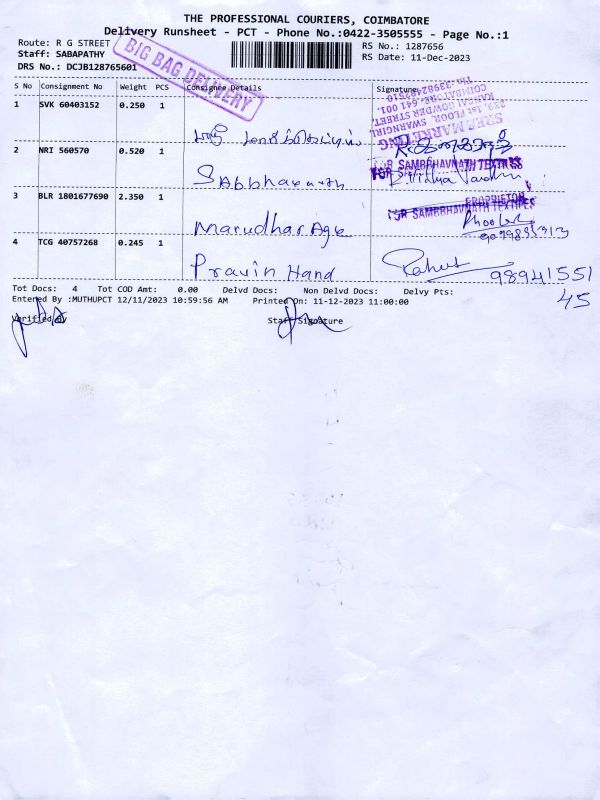 THE PROFESSIONAL COURIERS, COIMBATORE
Delivery Runsheet - PCT - Phone No.:0422-3505555 - Page No.:1
Route: R G STREET
RS No.: 1287656
Staff: SABAPATHY
RS Date: 11-Dec-2023
DRS No.: DCJB128765601
BIG BAG DELIVERY
S No Consignment No Weight PCS Consignee Details Signature
1 SVK 60403152 0.250 1
SRE MARKETING
239, 1st FLOOR, SWARNGIRI
RANGAI GOWDER STREET,
COIMBATORE-641 001.
2 NRI 560570 0.520 1
Sabbhavanth
FOR SAMBHAVNATH TEXTILES
3 BLR 1801677690 2.350 1
Marudhar Age
PROPRIETOR
FOR SAMBHAVNATH TEXTILES
4 TCG 40757268 0.245 1
Pravin Hand
Rahul 98941551
45
Tot Docs: 4 Tot COD Amt: 0.00 Delvd Docs: Non Delvd Docs: Delvy Pts:
Entered By :MUTHUPCT 12/11/2023 10:59:56 AM Printed On: 11-12-2023 11:00:00
Verified By Staff Signature